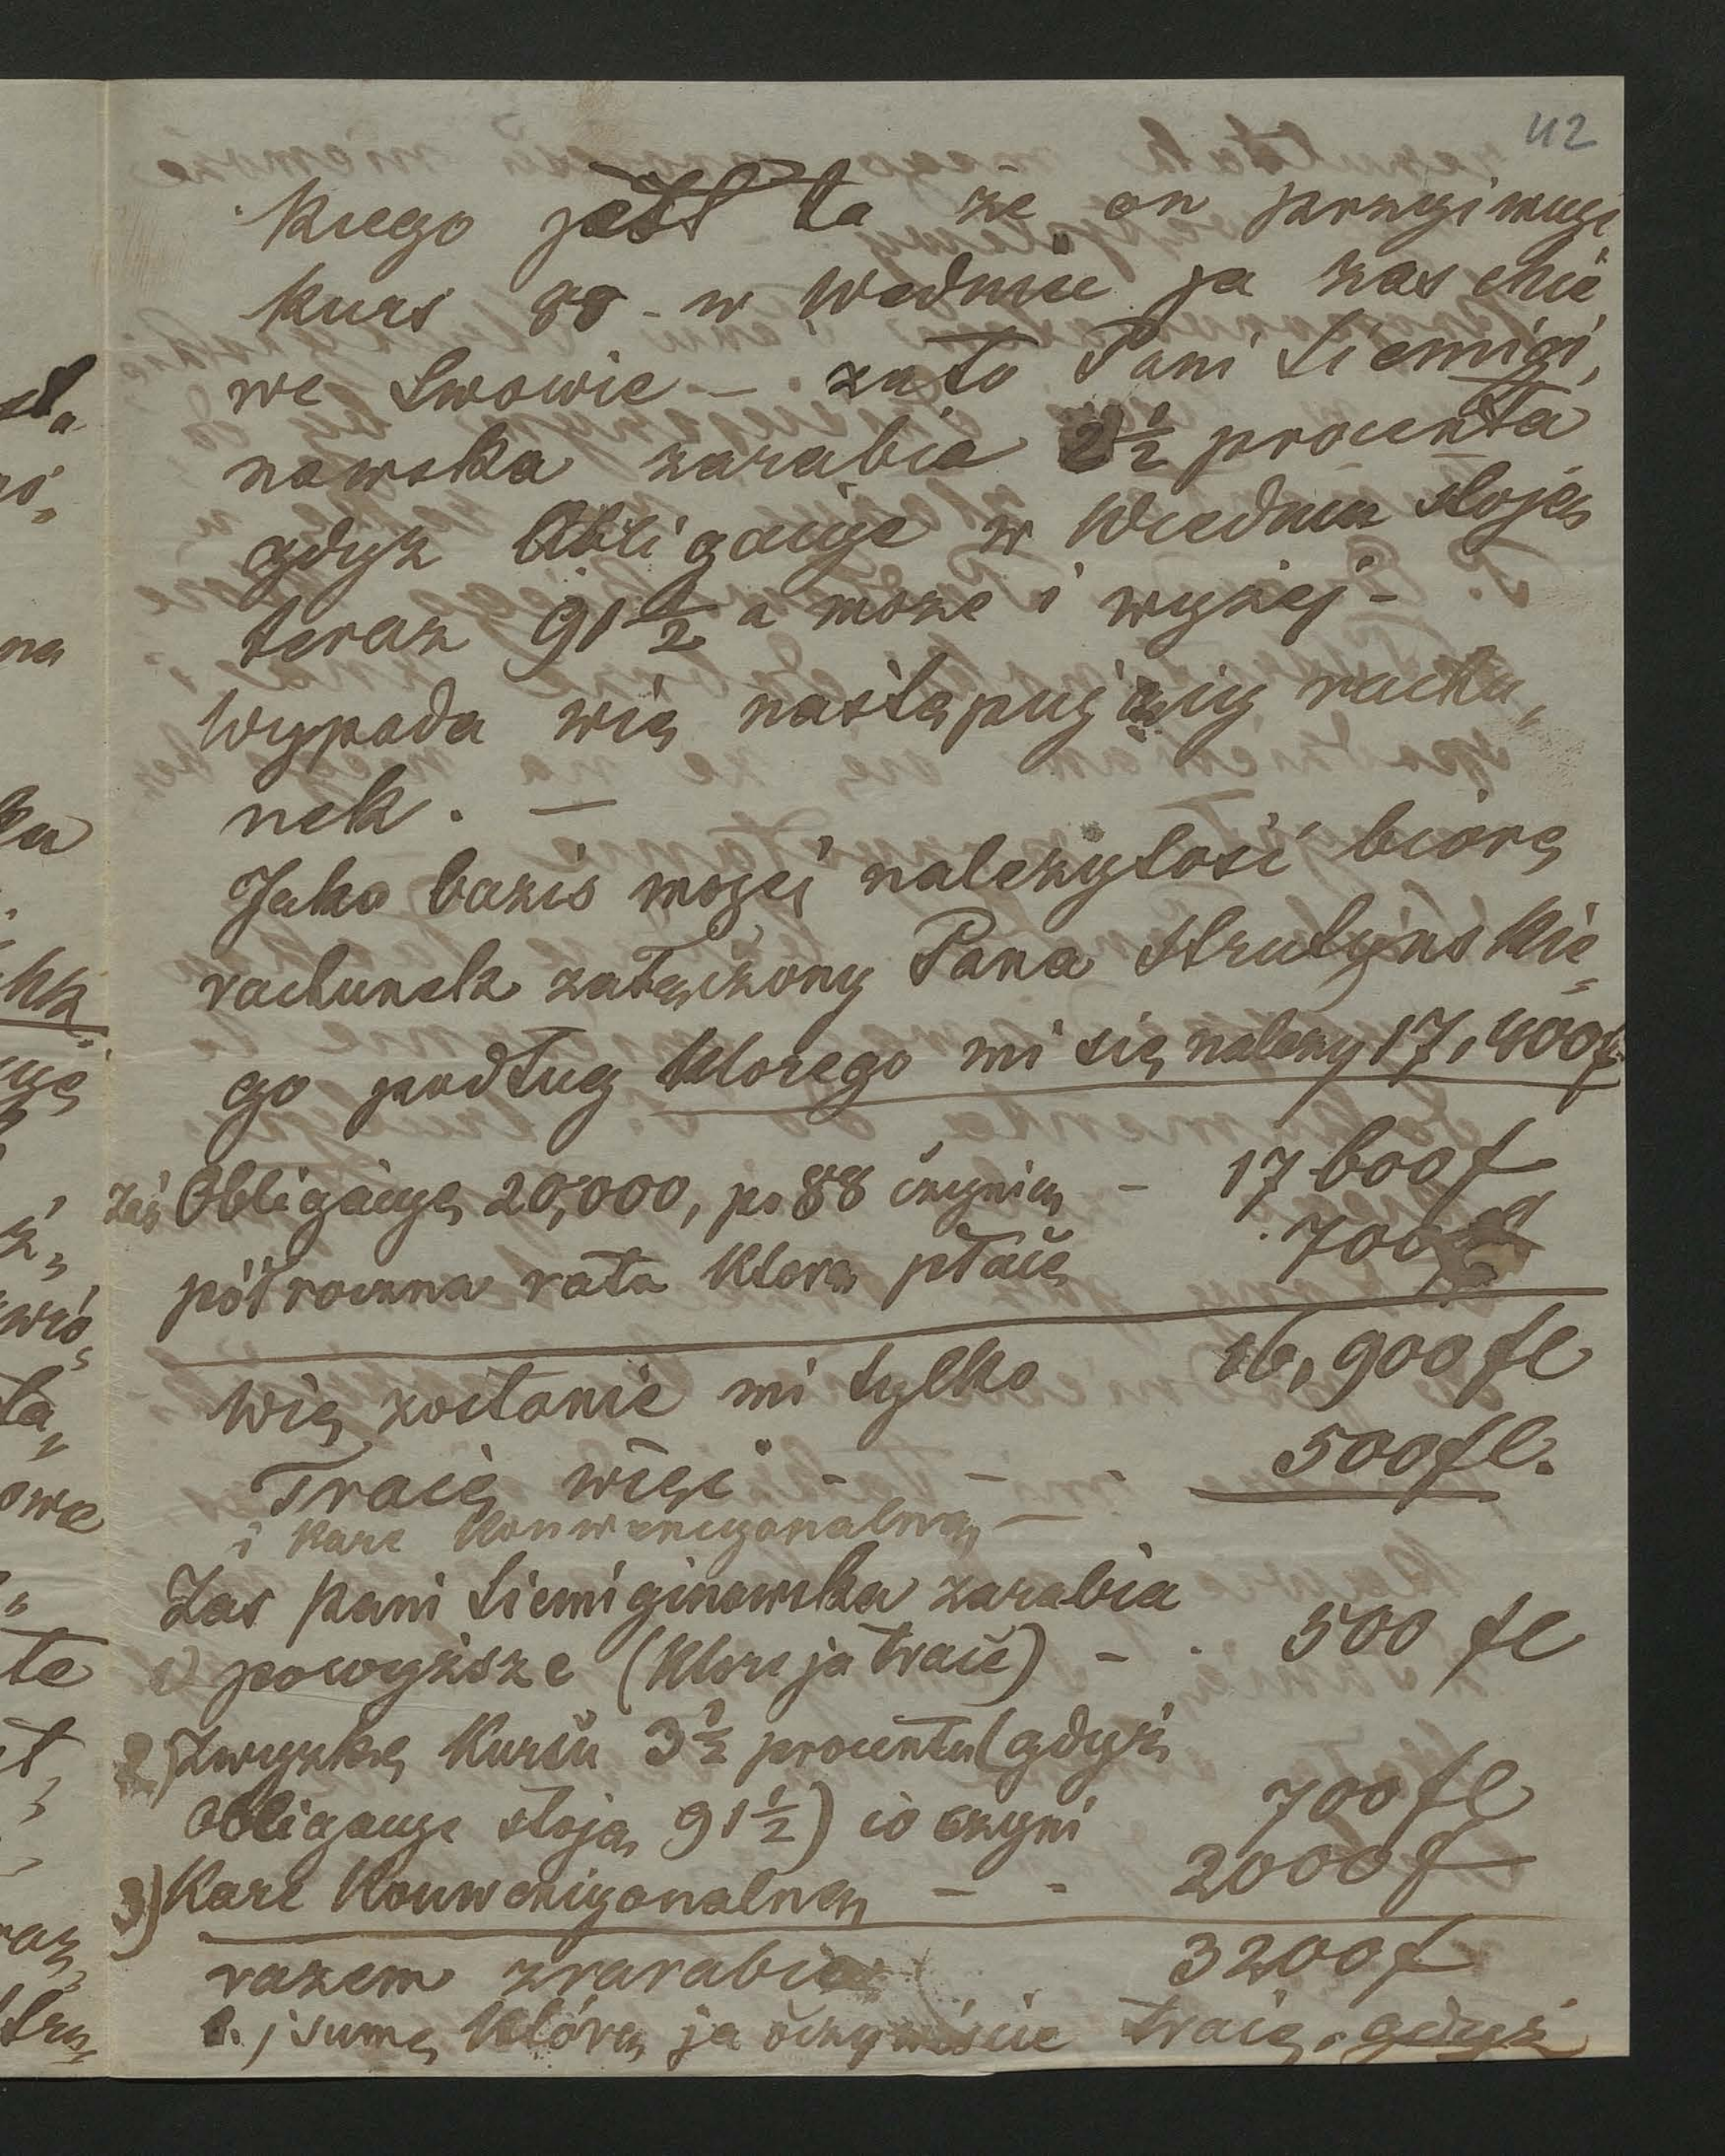 112
kiego jest ta że on przyimuje
kurs 88 - w Wiedniu ja zas chcę
we Lwowie — zato Pani Siemigi„
nowska zarabia 2½ procenta
gdyż Obligacije w Wiedniu stoją
teraz 91½ a może i wyżej -
Wypada więc następujący rachu„
nek. —
Jako bazis mojej należytość biorę
rachunek załączony Pana Strutyńskie„
go podług ktorego mi się należy 17,400 f
zaś Obligacye 20,000, po 88 czynią - 17600 f
półroczna rata ktorą płacę 700 f
Więc zostanie mi tylko 16,900 fl
Tracę więc - - - 500 fl.
i karę konwencyonalną —
Zas Pani Siemiginowska zarabia
1) powyższe (ktore ja tracę) - . 500 fl
2) Zwyzkę Kursu 3½ procentu (gdyż
Obligacye stoją 91½) co czyni 700 fl
3) Karę Konwencyonalną - - 2000 f
razem zrarabia 3200 f
t. j sumę którą ja oczywiście tracę, gdyż